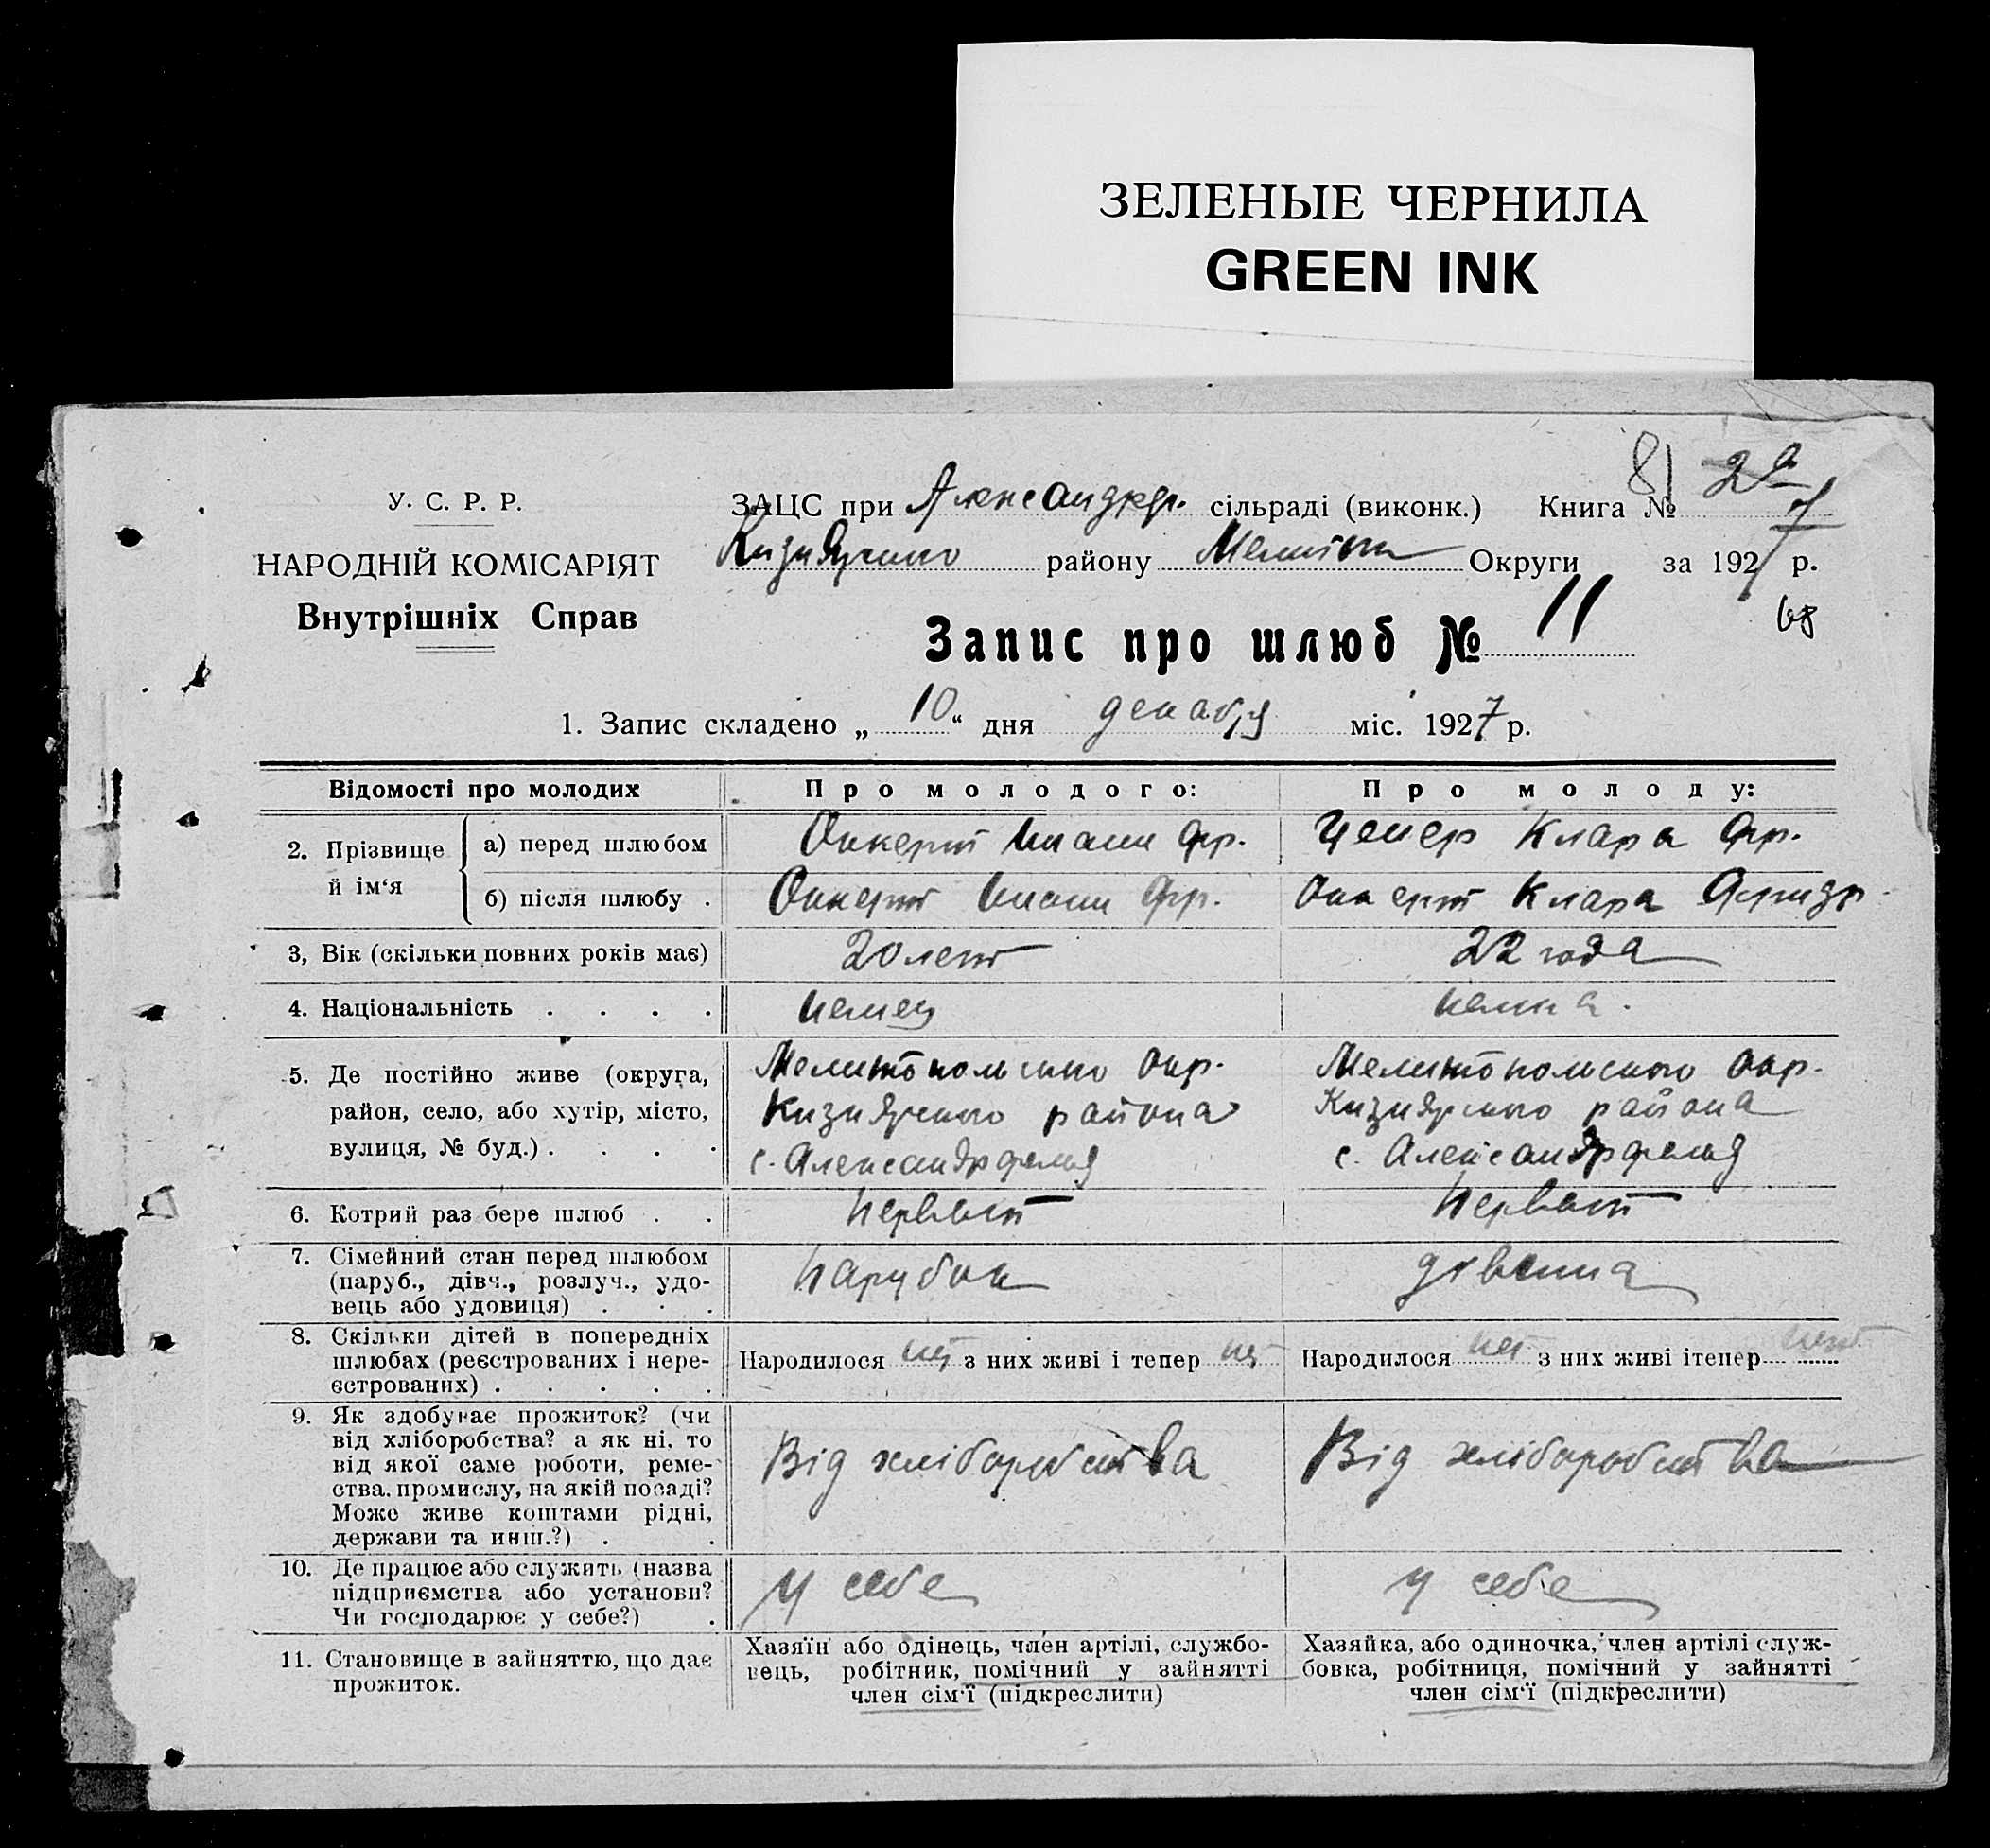 ЗЕЛЕНЫЕ ЧЕРНИЛА
GREEN INK
81 2а
У. С. Р. Р. ЗАЦС при Александрф. сільраді (виконк.) Книга №
НАРОДНІЙ КОМІСАРІЯТ Кизиярского району Мелитоп Округи за 1927 р.
Внутрішніх Справ
68
Запис про шлюб № 11
1. Запис складено „ 10 “ дня декабря міс. 1927 р.
Відомості про молодих Про молодого: Про молоду:
2. Прізвище й ім‘я а) перед шлюбом Оккерт Иоган Фр. Цечер Клара Фр.
б) після шлюбу . Оккерт Иоган Фр. Оккерт Клара Фридр
3, Вік (скільки повних років має) 20 лет 22 года
4. Національність . . . . немец немка.
5. Де постійно живе (округа, Мелитопольского Окр. Мелитопольского Окр.
район, село, або хутір, місто, Кизиярского района Кизиярского района
вулиця, № буд.) . . . . с. Александрфельд с. Александрфельд
6. Котрий раз бере шлюб . . Первый Первый
7. Сімейний стан перед шлюбом
(паруб., дівч., розлуч., удо- Парубок дівчина
вець або удовиця) . . .
8. Скільки дітей в попередніх
шлюбах (реєстрованих і нере- Народилося нет з них живі і тепер нет Народилося нет з них живі ітепер нет
єстрованих) . . . . .
9. Як здобуває прожиток? (чи
від хліборобства? а як ні, то
від якої саме роботи, реме- Від хліборобства Від хліборобства
ства, промислу, на якій посаді?
Може живе коштами рідні,
держави та инш.?) . .
10. Де працює або служить (назва
підприємства або установи? У себе У себе
Чи господарює у себе?) .
11. Становище в зайняттю, що дає прожиток. Хазяїн або одінець, член артілі, службо- Хазяйка, або одиночка, член артілі служ-
вець, робітник, помічний у зайнятті бовка, робітниця, помічний у зайнятті
член сім‘ї (підкреслити) член сім‘ї (підкреслити)